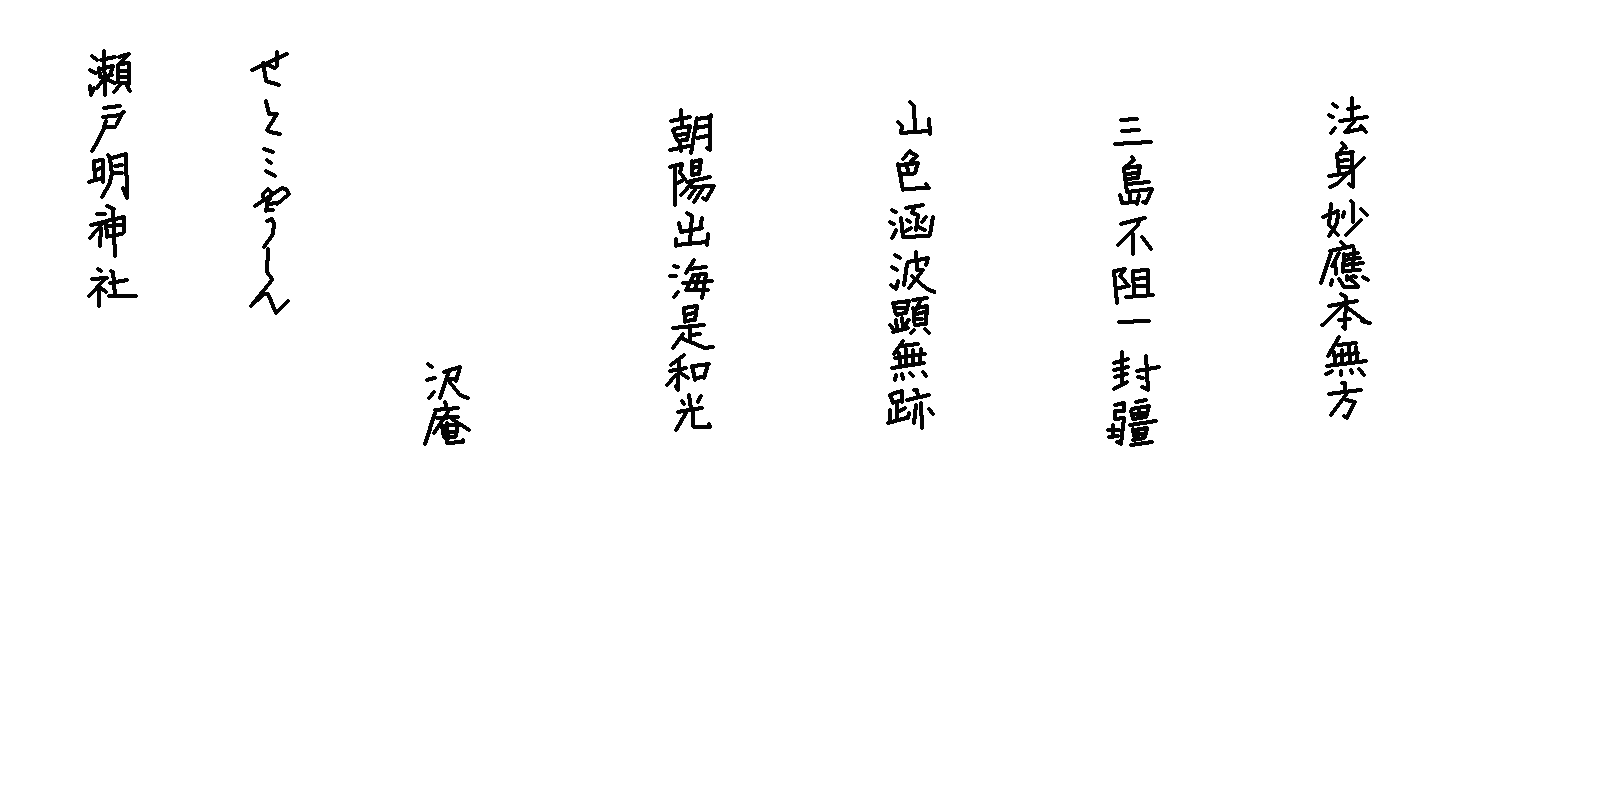 法身妙應本無方
三島不阻一封疆
山色涵波顕無跡
朝陽出海是和光
沢庵
せとミやうしん
瀬戸明神社